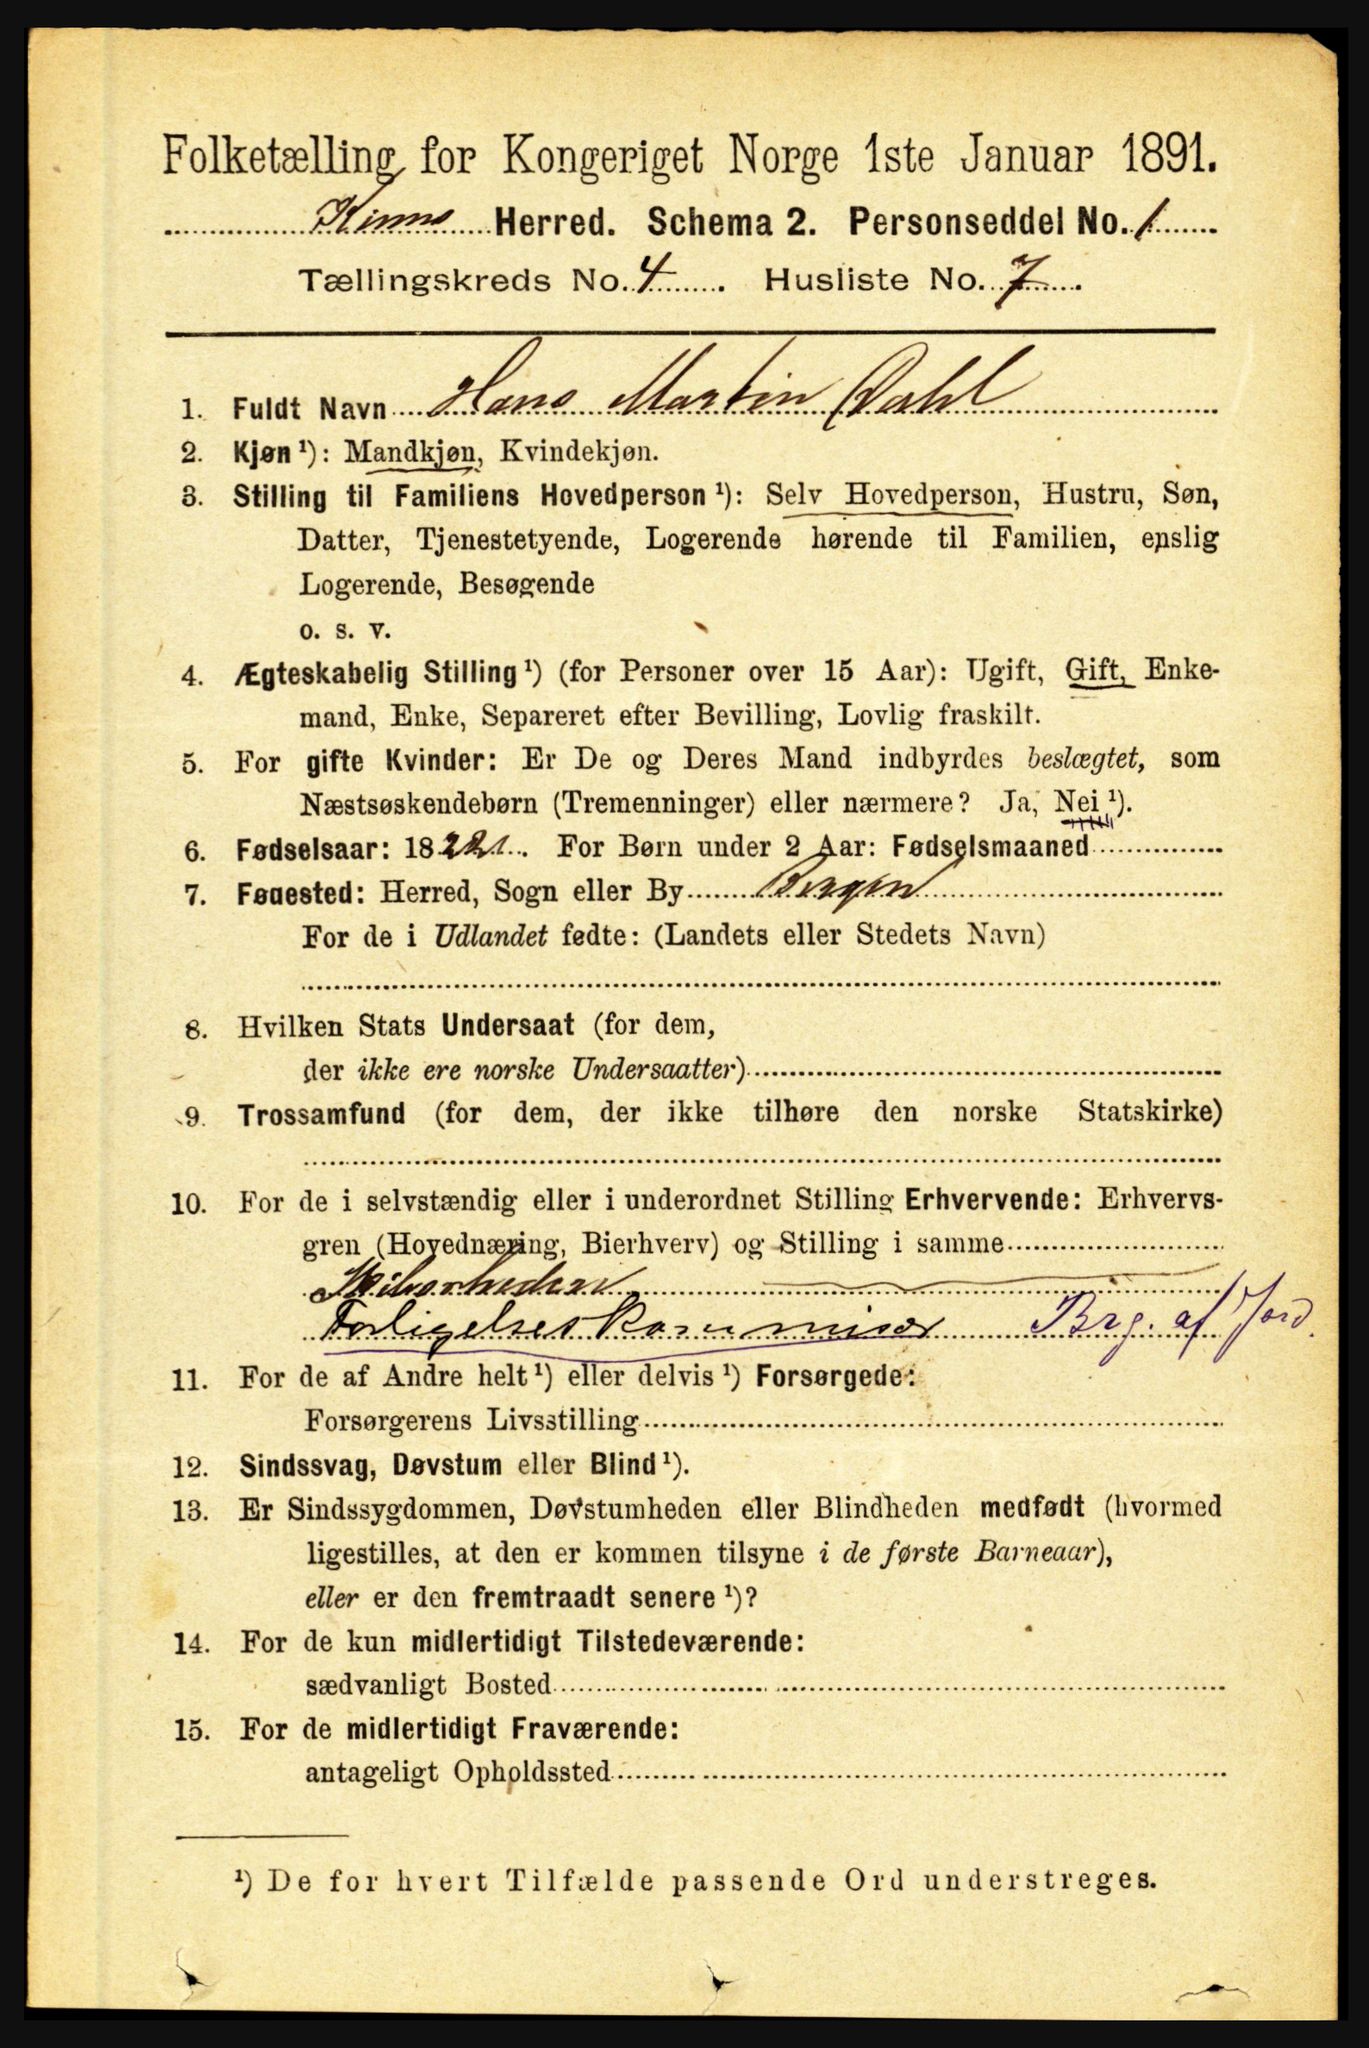 Folketælling for Kongeriget Norge 1ste Januar 1891.
Kinns Herred. Schema 2. Personseddel No. 1
Tællingskreds No. 4. Husliste No. 7.
1. Fuldt Navn Hans Martin Dahl
2. Kjøn ¹): Mandkjøn, Kvindekjøn.
3. Stilling til Familiens Hovedperson ¹): Selv Hovedperson, Hustru, Søn,
Datter, Tjenestetyende, Logerende hørende til Familien, enslig
Logerende, Besøgende
o. s. v.
4. Ægteskabelig Stilling ¹) (for Personer over 15 Aar): Ugift, Gift, Enke-
mand, Enke, Separeret efter Bevilling, Lovlig fraskilt.
5. For gifte Kvinder: Er De og Deres Mand indbyrdes beslægtet, som
Næstsøskendebørn (Tremenninger) eller nærmere? Ja, Nei ¹).
6. Fødselsaar: 18 For Børn under 2 Aar: Fødselsmaaned
7. Fødested: Herred, Sogn eller By Bergen
For de i Udlandet fødte: (Landets eller Stedets Navn)
8. Hvilken Stats Undersaat (for dem,
der ikke ere norske Undersaatter)
9. Trossamfund (for dem, der ikke tilhøre den norske Statskirke)
10. For de i selvstændig eller i underordnet Stilling Erhvervende: Erhvervs-
gren (Hovednæring, Bierhverv) og Stilling i samme
Forligelseskommisær Brg. af Jord.
11. For de af Andre helt ¹) eller delvis ¹) Forsørgede:
Forsørgerens Livsstilling
12. Sindssvag, Døvstum eller Blind ¹).
13. Er Sindssygdommen, Døvstumheden eller Blindheden medfødt (hvormed
ligestilles, at den er kommen tilsyne i de første Barneaar),
eller er den fremtraadt senere ¹)?
14. For de kun midlertidigt Tilstedeværende:
sædvanligt Bosted
15. For de midlertidigt Fraværende:
antageligt Opholdssted
¹) De for hvert Tilfælde passende Ord understreges.